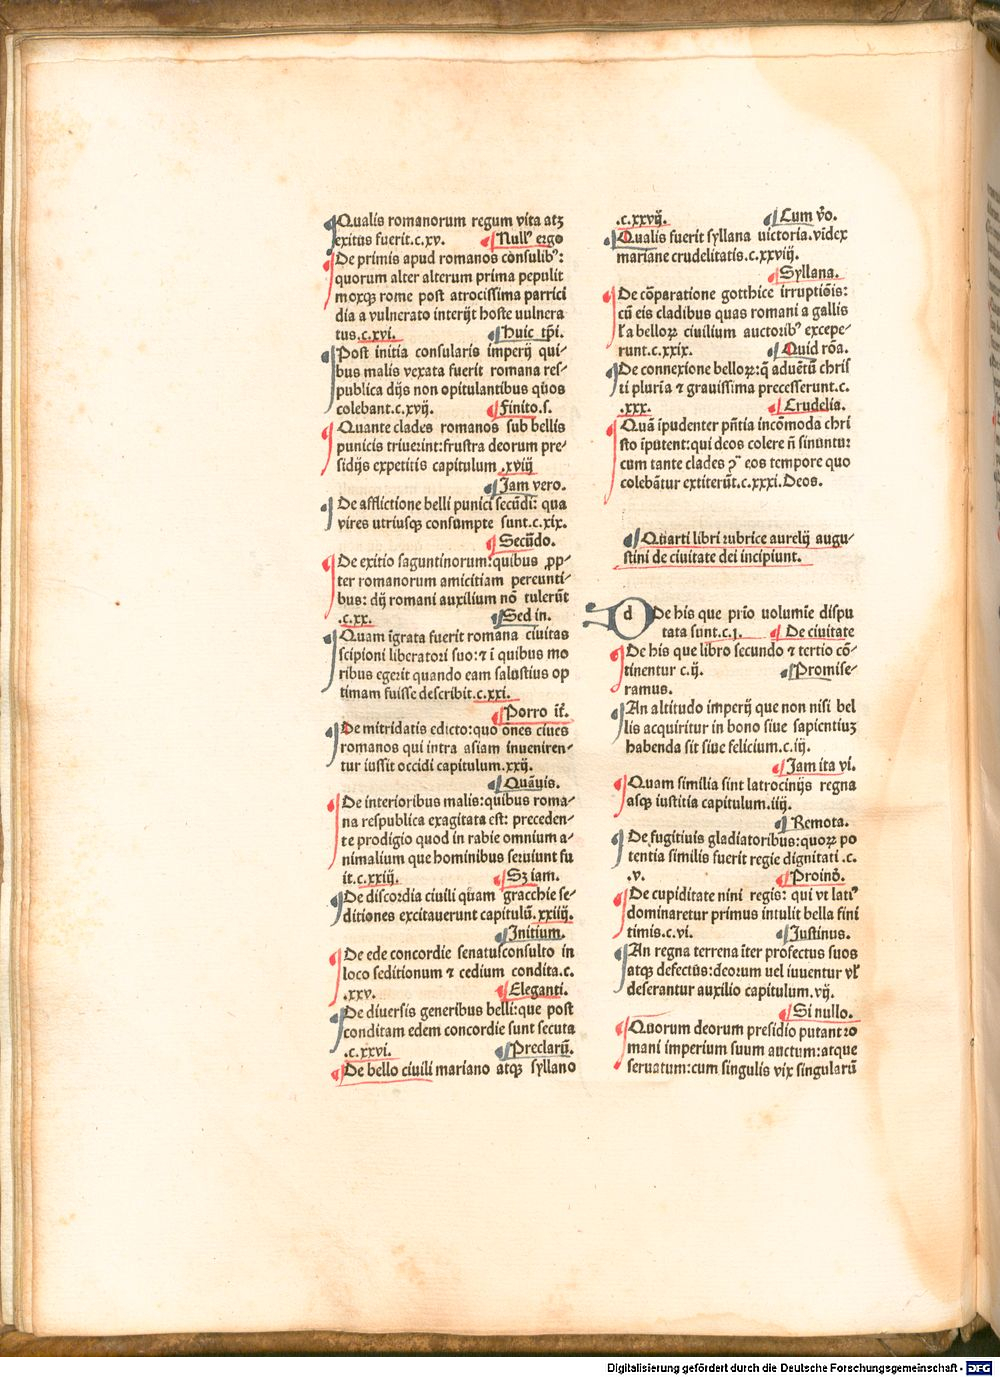 Qualis romanorum regum vita atqꝫ
exitus fuerit.c.xv. Null⁹ ergo
De primis apud romanos cōsulib⁹:
quorum alter alterum prima pepulit
moxqꝫ rome post atrocissima parrici
dia a vulnerato interijt hoste uulnera
tus.c.xvi. Huic tp̄i.
Post initia consularis imperij qui-
bus malis vexata fuerit romana res-
publica dijs non opitulantibus quos
colebant.c.xvij. Finito.s.
Quante clades romanos sub bellis
punicis triuerint:frustra deorum pre-
sidijs expetitis capitulum .xviij
Jam vero.
De afflictione belli punici secūdi: qua
vires utriusqꝫ consumpte sunt.c.xix.
Secūdo.
De exitio saguntinorum:quibus ꝓp-
ter romanorum amicitiam pereunti-
bus: dij romani auxilium nō tulerūt
.c.xx. Sed in.
Quam īgrata fuerit romana ciuitas
scipioni liberatori suo:⁊ ī quibus mo
ribus egerit quando eam salustius op
timam fuisse describit.c.xxi.
Porro it̄.
De mitridatis edicto:quo ōnes ciues
romanos qui intra asiam inueniren-
tur iussit occidi capitulum.xxij.
Quāuis.
De interioribus malis:quibus roma-
na respublica exagitata est: preceden-
te prodigio quod in rabie omnium a-
nimalium que hominibus seruiunt fu
it.c.xxiij. Sꝫ iam.
De discordia ciuili quam gracchie se-
ditiones excitauerunt capitulū.xxiiij.
Initium.
De ede concordie senatusconsulto in
loco seditionum ⁊ cedium condita.c.
.xxv. Eleganti.
De diuersis generibus belli:que post
conditam edem concordie sunt secuta
.c.xxvi. Preclarū.
De bello ciuili mariano atqꝫ syllano
.c.xxvij. Cum v̄o.
Qualis fuerit syllana uictoria.videx
mariane crudelitatis.c.xxviij.
Syllana.
De cōparatione gotthice irruptiōis:
cū eis cladibus quas romani a gallis
ł a belloꝝ ciuilium auctorib⁹ excepe-
runt.c.xxix. Quid rōa.
De connexione belloꝝ:q̄ aduētū chris
ti pluria ⁊ grauissima precesserunt.c.
.xxx. Crudelia.
Quā īpudenter pn̄tia incōmoda chri
sto īputent:qui deos colere n̄ sinuntur
cum tante clades eos tempore quo
colebātur extiterūt.c.xxxi.Deos.
Quarti libri rubrice aurelij augu-
stini de ciuitate dei incipiunt.
d De his que prio uolumīe dispu
tata sunt.c.j. De ciuitate
De his que libro secundo ⁊ tertio cō-
tinentur c.ij. Promise-
ramus.
An altitudo imperij que non nisi bel
lis acquiritur in bono siue sapientiuꝫ
habenda sit siue felicium.c.iij.
Jam ita vi.
Quam similia sint latrocinijs regna
asqꝫ iustitia capitulum.iiij.
Remota.
De fugitiuis gladiatoribus:quoꝝ po
tentia similis fuerit regie dignitati .c.
.v. Proinō.
De cupiditate nini regis: qui vt lati⁹
dominaretur primus intulit bella fini
timis.c.vi. Justinus.
An regna terrena īter profectus suos
atqꝫ defectus:deorum uel iuuentur vł
deserantur auxilio capitulum.vij.
Si nullo.
Quorum deorum presidio putant ro
mani imperium suum auctum:atque
seruatum:cum singulis vix singularū
Digitalisierung gefördert durch die Deutsche Forschungsgemeinschaft - DFG